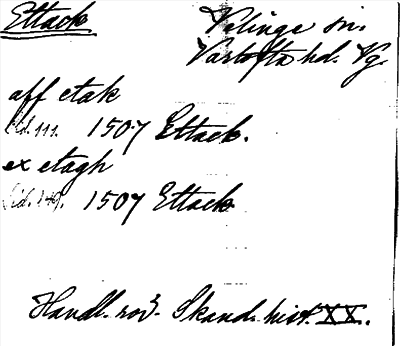 Ettack
Velinge sn.
Vartofta hd. Vg.
aff etak
sid. 111. 1507 Ettack.
ex etagh
sid. 149. 1507 Ettack
Handl. rör. Skand. hist. XX.